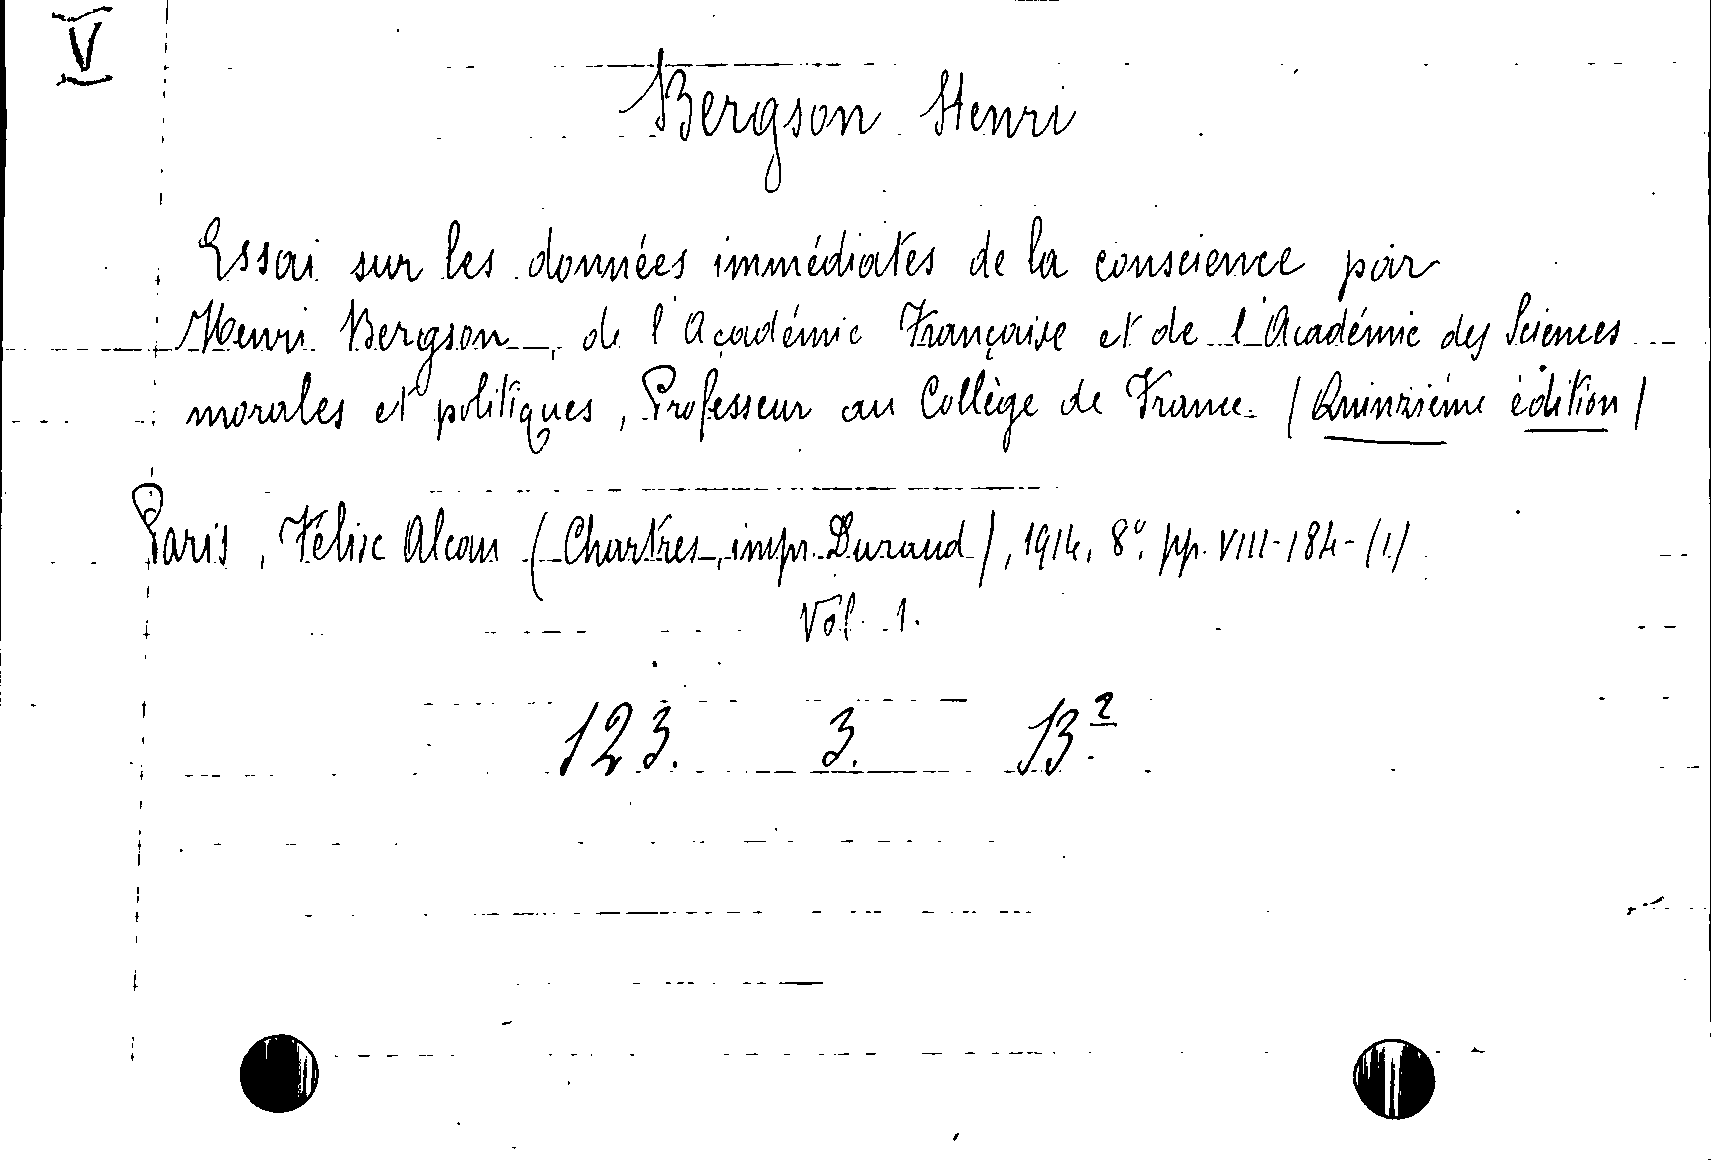 V
Bergson Henri
Essai sur les données immédiates de la conscience par
Henri Bergson, de l'Académie Française et de l'Académie des Sciences
morales et politiques, Professeur au Collège de France. (Quinzième édition)
Paris, Félix Alcan (Chartres, impr. Durand), 1914, 8º, pp. VIII-184-(1)
Vol. 1.
123. 3. 13.²